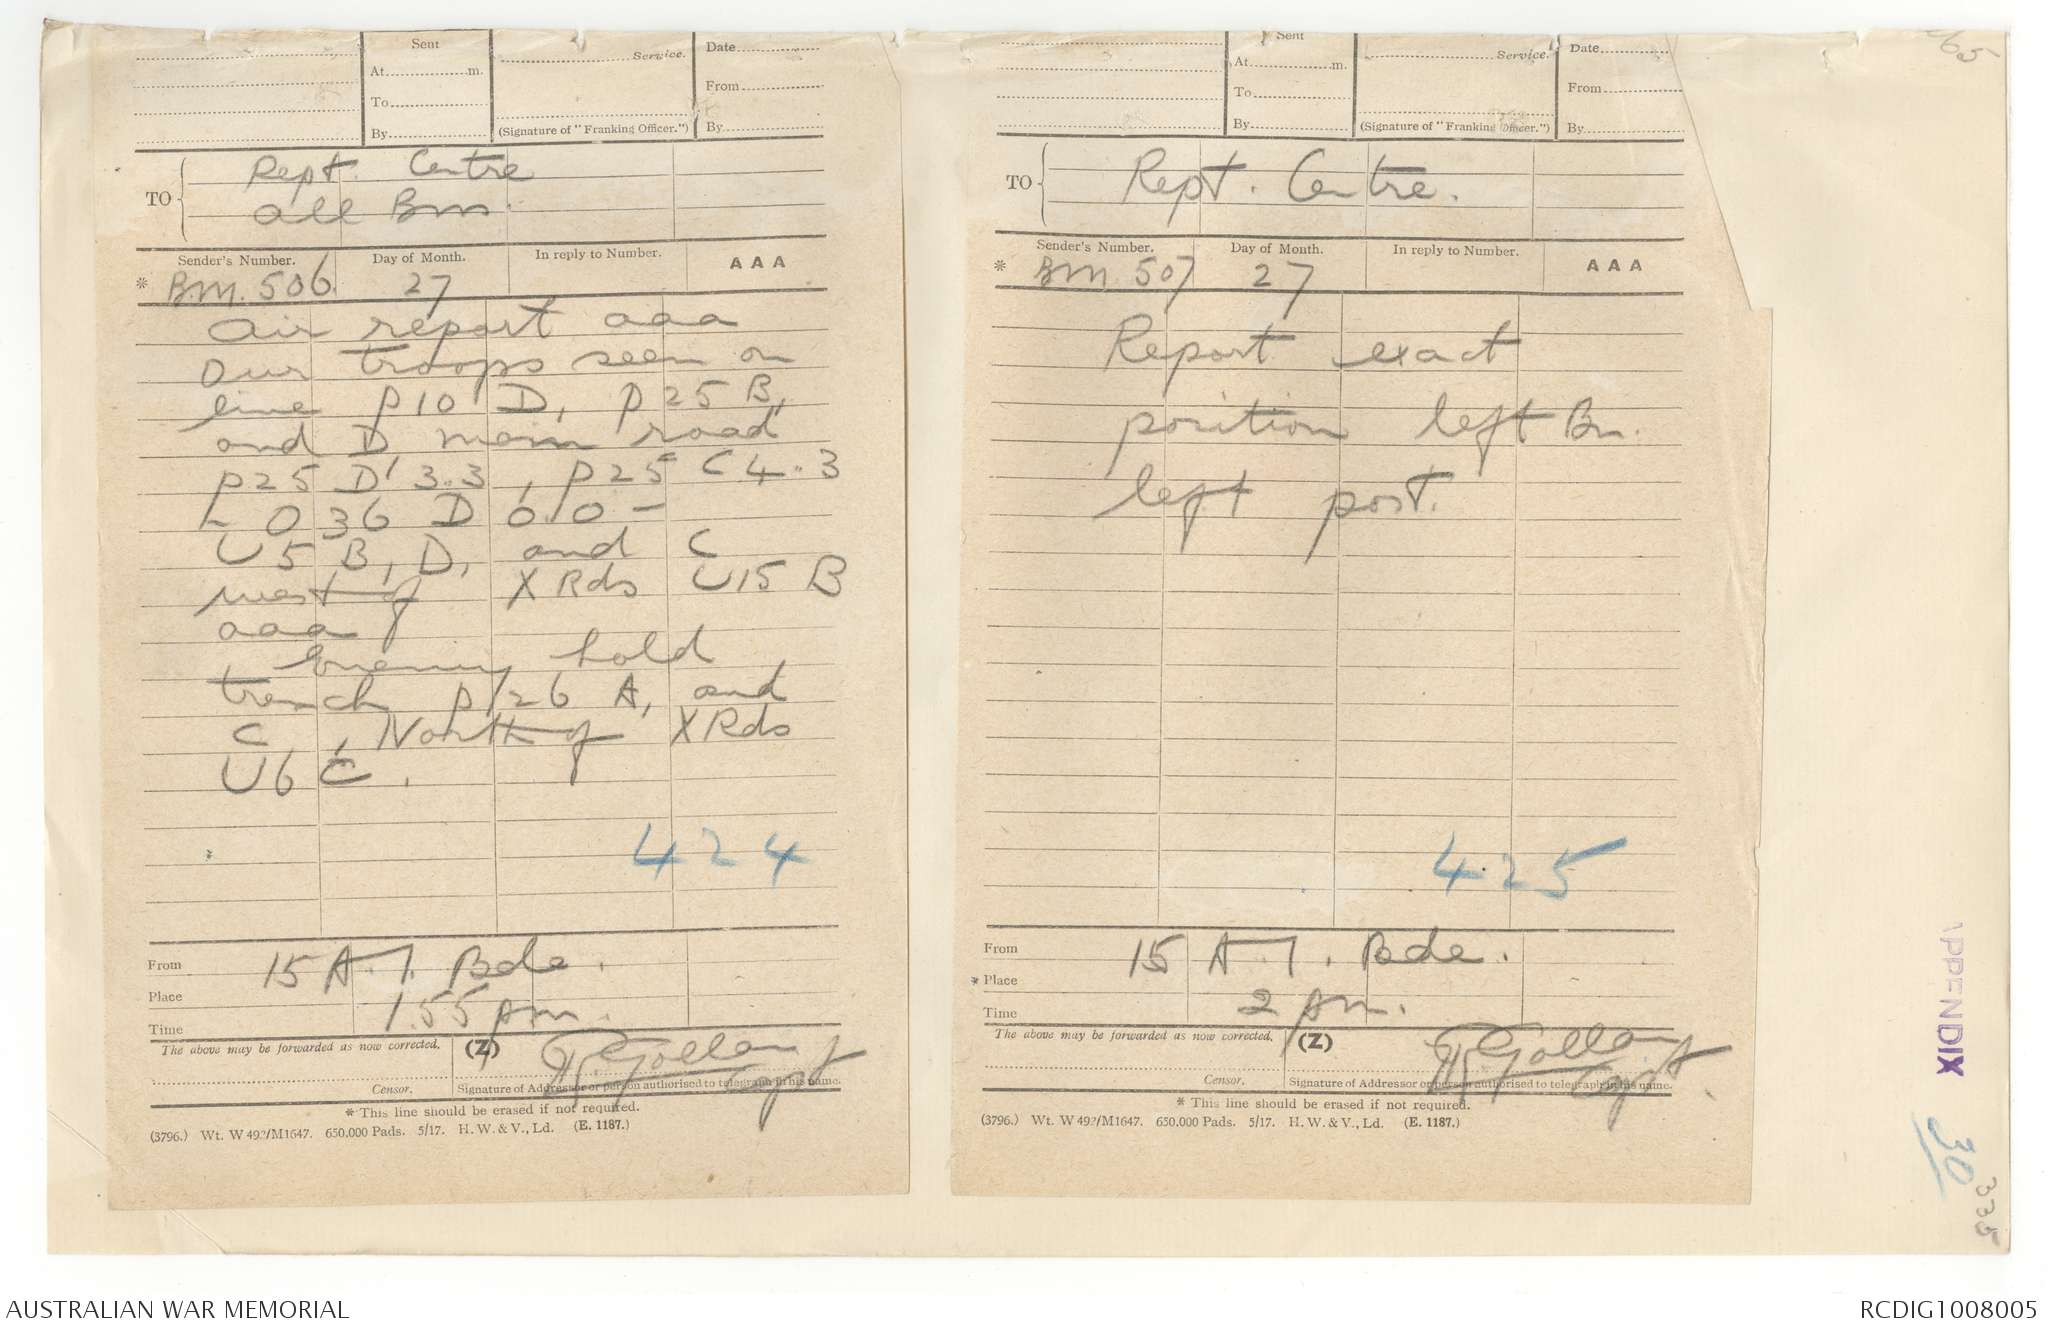 Sent
At..........m.
To..........
By..........
Service.
(Signature of "Franking Officer.")
Date..........
From..........
By..........
TO
Rept. Centre
all Bns.
Sender's Number.
Day of Month.
In reply to Number.
AAA
* B.M. 506
27
Air report aaa
Our troops seen on
line P10 D, P25 B,
and D main road
P25 D 3.3, P25 C 4.3
L O 36 D 0.0 -
U5 B, D, and C
west of X Rds U15 B
aaa
Enemy hold
trench P26 A, and
C, North of X Rds
U6 C.
424
From
15 A.I. Bde.
Place
Time
1.55 pm.
The above may be forwarded as now corrected.
(Z)
R. Gollan
Capt
Censor.
Signature of Addressor or person authorised to telegraph in his name.
* This line should be erased if not required.
(3796.) Wt. W 492/M1647. 650.000 Pads. 5/17. H. W. & V., Ld. (E. 1187.)
Sent
At..........m.
To..........
By..........
Service.
(Signature of "Franking Officer.")
Date..........
From..........
By..........
TO
Rept. Centre.
Sender's Number.
Day of Month.
In reply to Number.
AAA
* BM. 507
27
Report exact
position left Bn.
left post.
425
From
15 A.I. Bde.
* Place
Time
2 pm.
The above may be forwarded as now corrected.
(Z)
R. Gollan
Capt.
Censor.
Signature of Addressor or person authorised to telegraph in his name.
* This line should be erased if not required.
(3796.) Wt. W 492/M1647. 650.000 Pads. 5/17. H. W. & V., Ld. (E. 1187.)
APPENDIX
30
335
AUSTRALIAN WAR MEMORIAL
RCDIG1008005